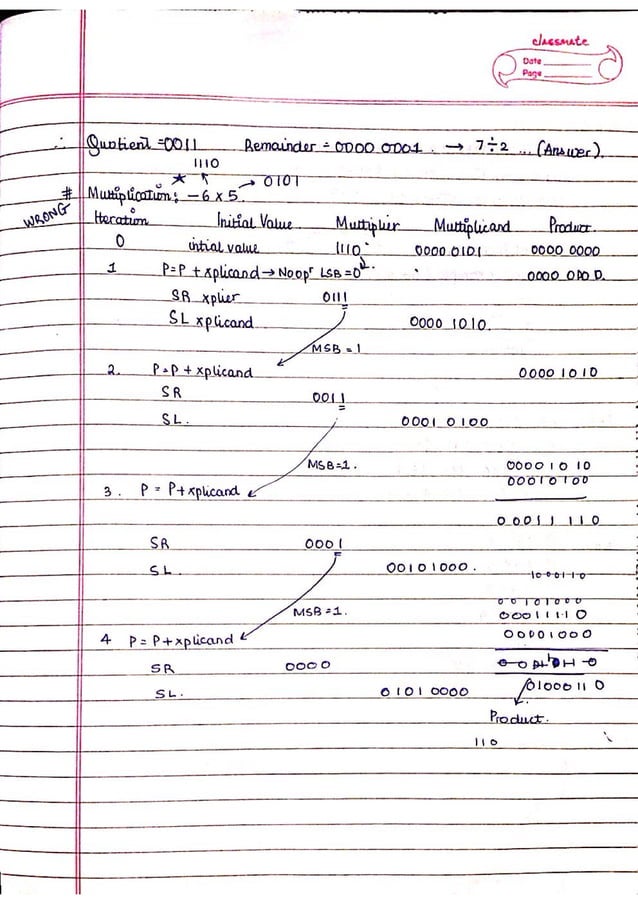 classmate
Date
Page
∴ Quotient = 0011 Remainder = 0000 0001. → 7÷2 ... (Answer).
1110
# Multiplication: -6 x 5. → 0101
WRONG
Iteration Initial Value Multiplier Multiplicand Product.
0 intial value 1110 0000 0101 0000 0000
1 P=P + xplicand → No opr LSB = 0 0000 000 0.
SR xplier 0111
SL xplicand 0000 1010.
MSB = 1
2. P=P + xplicand 0000 1010
SR 0011
SL. 0001 0100
MSB=1. 00001010
00010100
3. P = P+xplicand
00011110
SR 0001
SL. 00101000.
1000110
00101000
MSB=1. 00011110
4 P = P+xplicand 00001000
SR 0000
SL. 0101 0000 01000110
Product.
110